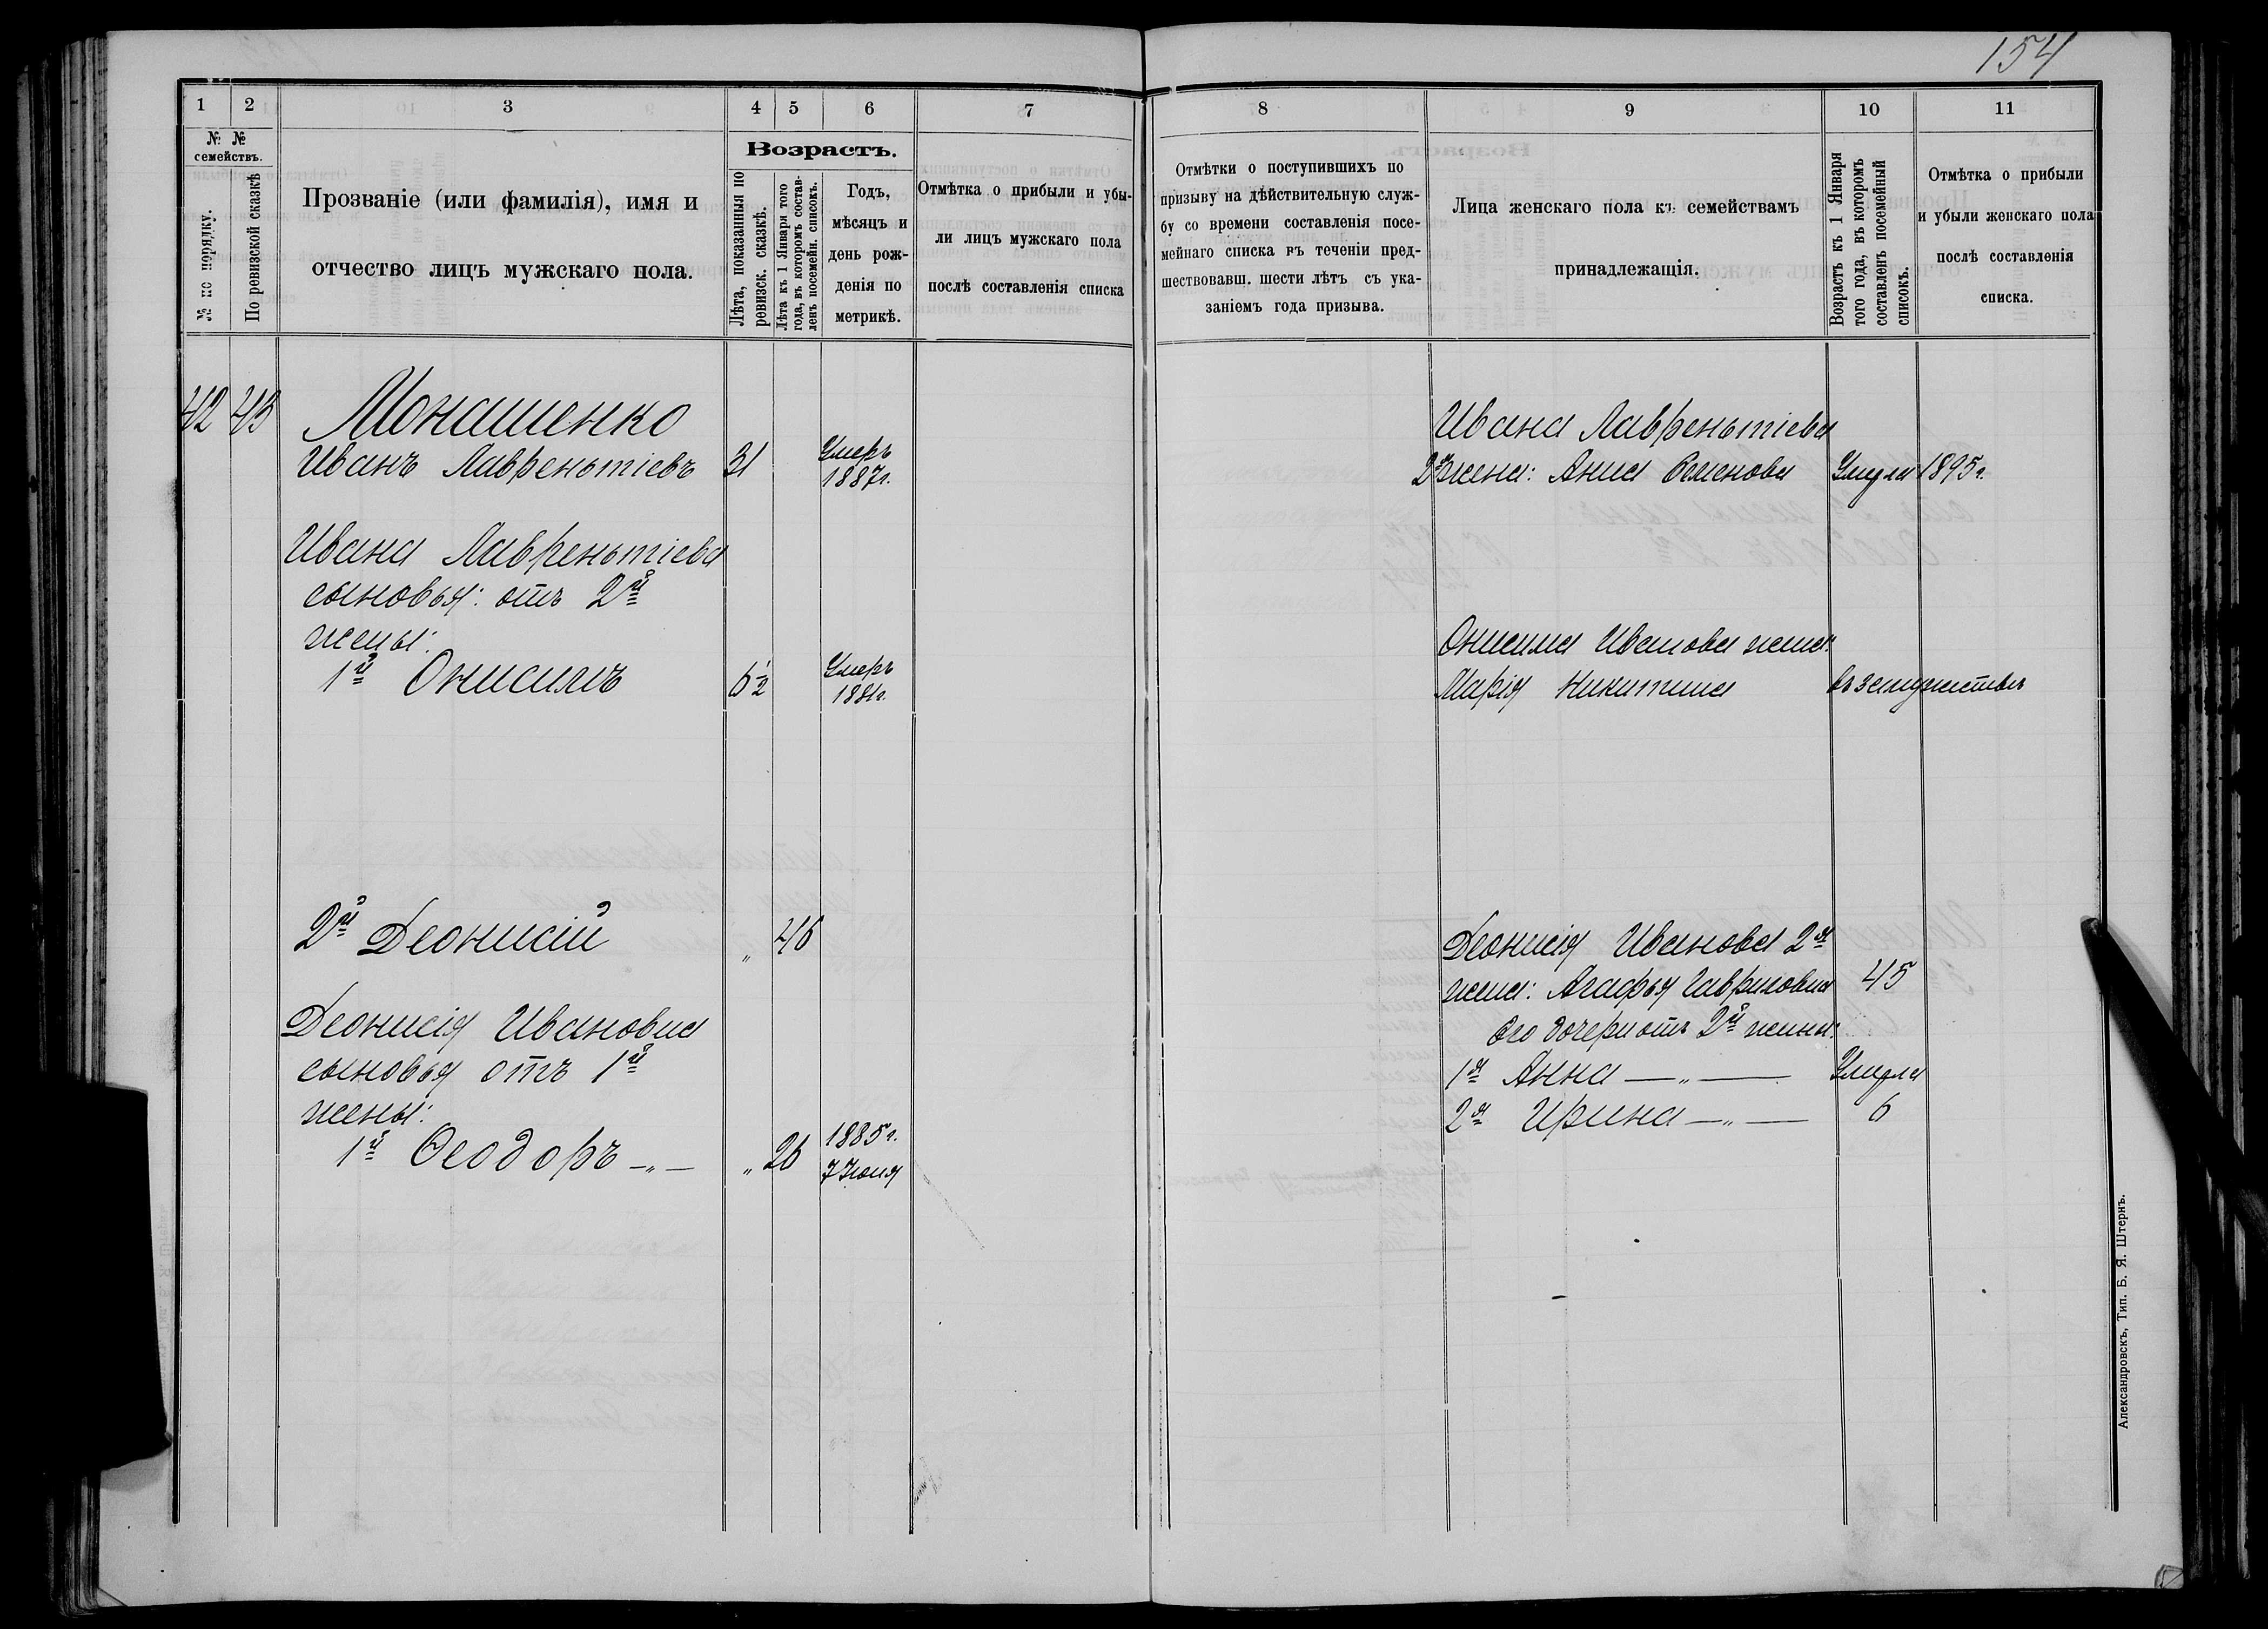 154
1 2 3 4 5 6 7
№ № семействъ.
№ по порядку.
По ревизской сказкѣ
Прозваніе (или фамилія), имя и
отчество лицъ мужскаго пола.
Возрастъ.
Лѣта, показанныя по
ревизск. сказкѣ.
Лѣта къ 1 Января того
года, въ которомъ состав-
ленъ посемейн. списокъ.
Годъ,
мѣсяцъ и
день рож-
денія по
метрикѣ.
Отмѣтка о прибыли и убы-
ли лицъ мужскаго пола
послѣ составленія списка
42 43 Монашенко
Иванъ Лаврентьіевъ 31 Умеръ
1887г.
Ивана Лаврентьіева
сыновья: отъ 2й
жены:
1й Онисимъ 6½ Умеръ
1881г.
2й Деонисій „ 46
Деонисія Иванова
сыновья отъ 1й
жены:
1й Ѳеодоръ —„— „ 26 1885г.
7 Іюня
8 9 10 11
Отмѣтки о поступившихъ по
призыву на дѣйствительную служ-
бу со времени составленія посе-
мейнаго списка въ теченіи пред-
шествовавш. шести лѣтъ съ ука-
заніемъ года призыва.
Лица женскаго пола къ семействамъ
принадлежащія.
Возрастъ къ 1 Января
того года, въ которомъ
составленъ посемейный
списокъ.
Отмѣтка о прибыли
и убыли женскаго пола
послѣ составленія
списка.
Ивана Лаврентьіева
2я жена: Анна Семенова Умерла 1895г.
Онисима Иванова жена:
Марія Никитина въ замужествѣ
Деонисія Иванова 2я
жена: Агафья Гаврилова 45
Его дочери отъ 2й жены:
1я Анна —„— Умерла
2я Ирина —„— 6
Александровскъ, Тип. Б. Я. Штернъ.